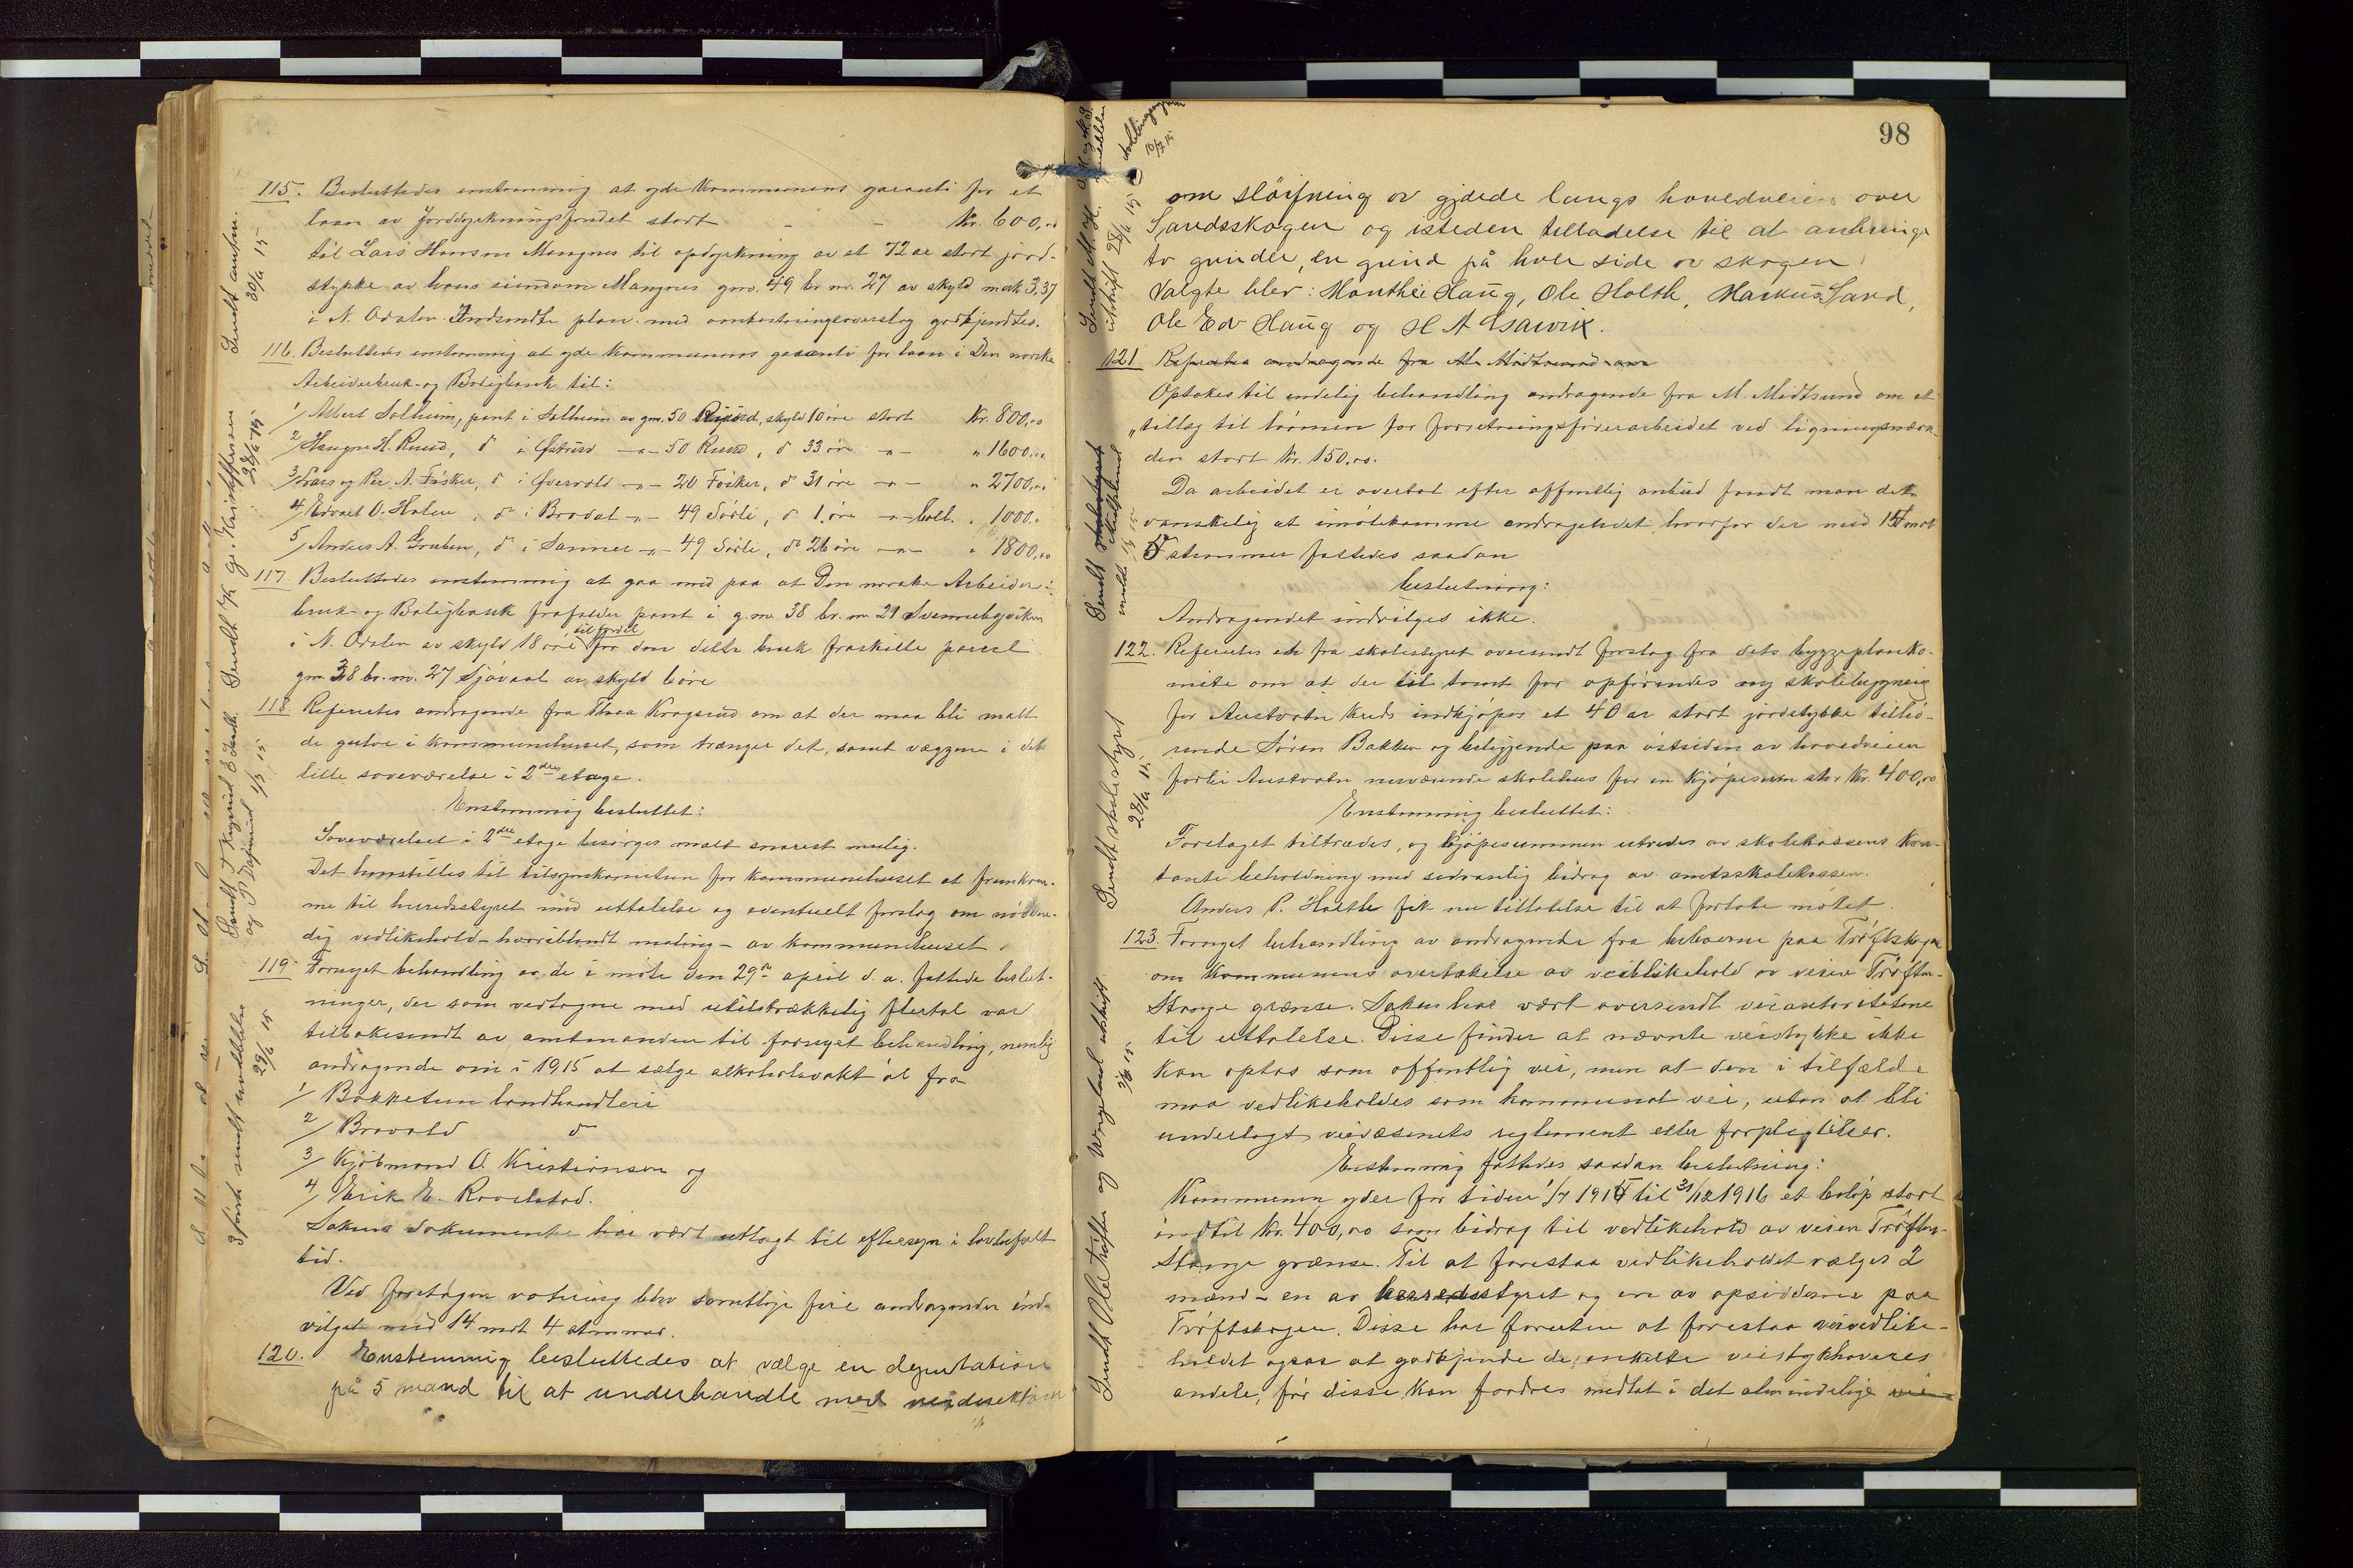 115. Besluttedes enstemmig at yde kommunens garanti for et
laan av Jorddyrkningsfondet stort - - Kr. 600,00
til Lars Hansen Mangnes til opdyrkning av et 72 ar stort jord-
stykke av hans eiendom Mangnes gno. 49 br. no. 27 av skyld mark 3,37
i N. Odalen. Indsendte plan med omkostningsoverslag godkjendtes.
116. Besluttedes enstemmig at yde kommunens garanti for laan i Den norske
Arbeiderbruk- og Boligbank til:
1/ Albert Solheim, pant i Solheim av gno. 50 skyld 10 øre stort Kr. 800,00
2/ Haugne H. Ruud, do i Østruud -"- 50 Ruud, do 33 øre -"- " 1600,00
3/ Lars og Per A. Fösker, do i Øvervold -"- 20 Fösker, do 31 øre -"- " 2700,00
4/ Edvart O. Holen, do i Brodal -"- 49 Sörli, do 1 øre -"- " 1000,00
5/ Anders A. Gruben, do i Sanner -"- 49 Sörli, do 26 øre -"- " 1800,00
117. Besluttedes enstemmig at gaa med paa at Den norske Arbeider-
bruk- og Boligbank frafalder pant i g. no. 38 br. no. 21 Svennebyviken
i N. Odalen av skyld 18 øre til fordel for den dette bruk fraskilte parcel
gno. 38 br. no. 27 Sjövaal av skyld 6 øre
118. Refereres andragende fra Thea Krogsrud om at der maa bli malt
de gulve i kommunehuset, som trænger det, samt væggene i det
lille soveværelse i 2den etage.
Enstemmig besluttet:
Soveværelset i 2den etage besörges malt snarest mulig.
Det henstilles til tilsynskomiteen for kommunehuset at fremkom-
me til herredsstyret med uttalelse og eventuelt forslag om nödven-
dig vedlikehold - hvoriblandt maling - av kommunehuset.
119. Fornyet behandling av de i möte den 29de april d. a. fattede beslut-
ninger, der som vedtagne med utilstrækkelig flertal var
tilbakesendt av amtmanden til fornyet behandling, nemlig
andragende om i 1915 at sælge alkoholsvakt öl fra
1/ Bakketun landhandleri
2/ Bravold do
3/ Kjöbmand O. Kristiansen og
4/ Erik E. Rovelstad.
Sakens dokumenter har vært utlagt til eftersyn i lovbefalt
tid.
Ved foretagen votering blev samtlige fire andragender ind-
vilget med 14 mot 4 stemmer.
120. Enstemmig besluttedes at vælge en deputation
på 5 mand til at underhandle med veidirektören
98
om slöifning av gjærde langs hovedveien over
Sandsskogen og isteden tilladelse til at anbringe
to grinder, en grind på hver side av skogen.
Valgte blev: Manthei Haug, Ole Holth, Markus Sand,
Ole Edv Haug og H A Gsarvix.
121 Refereres andragende fra M. Midtsund om
Optokes til endelig behandling andragende fra M. Midtsund om et
tillæg til lönnen for forretningsförerarbeidet ved ligningsvæsen-
den stort kr. 150,00.
Da arbeidet er overtat efter offentlig anbud fandt man det
vanskelig at imötekomme andragendet, hvorfor der med 15 mot
stemmer fattedes saadan
beslutning:
Andragendet indvilges ikke.
122. Refereres et fra skolestyret oversendt forslag fra dets byggeplanko-
mite om at der til tomt for opförendes ny skolebygning
for Austvatn kreds indkjöpes et 40 ar stort jordstykke tilhö-
rende Sören Bakken og beliggende paa östsiden av hovedveien
forbi Austvatn nuværende skolehus for en kjöpesum stor kr. 400,00
Enstemmig besluttet:
Forslaget tiltrædes, og kjöpesummen utredes av skolekassens kon-
tante beholdning med sedvanlig bidrag av amtsskolekassen.
Anders P. Holth fik nu tillatelse til at forlate mötet.
123. Fornyet behandling av andragende fra beboerne paa Tröftskogen
om kommunens overtakelse av vedlikehold av veien Tröften-
Stange grænse. Saken har vært oversendt veiautoritetene
til uttalelse. Disse finder at nævnte veistykke ikke
kan optas som offentlig vei, men at den i tilfælde
maa vedlikeholdes som kommunal vei, uten at bli
underlagt veivæsenets reglement eller forpligtelser.
Enstemmig fattedes saadan beslutning:
Kommunen yder for tiden 1/7 1915 til 31/12 1916 et belöp stort
indtil kr. 400,00 som bidrag til vedlikehold av veien Tröften-
Stange grænse. Til at forestaa vedlikeholdet vælges 2
mænd - en av herredsstyret og en av opsidderne paa
Tröftskogen. Disse har foruten at forestaa veivedlike-
holdet ogsaa at godkjende de enkelte veistykhaveres
andele, för disse kan fordres medtat i det almindelige